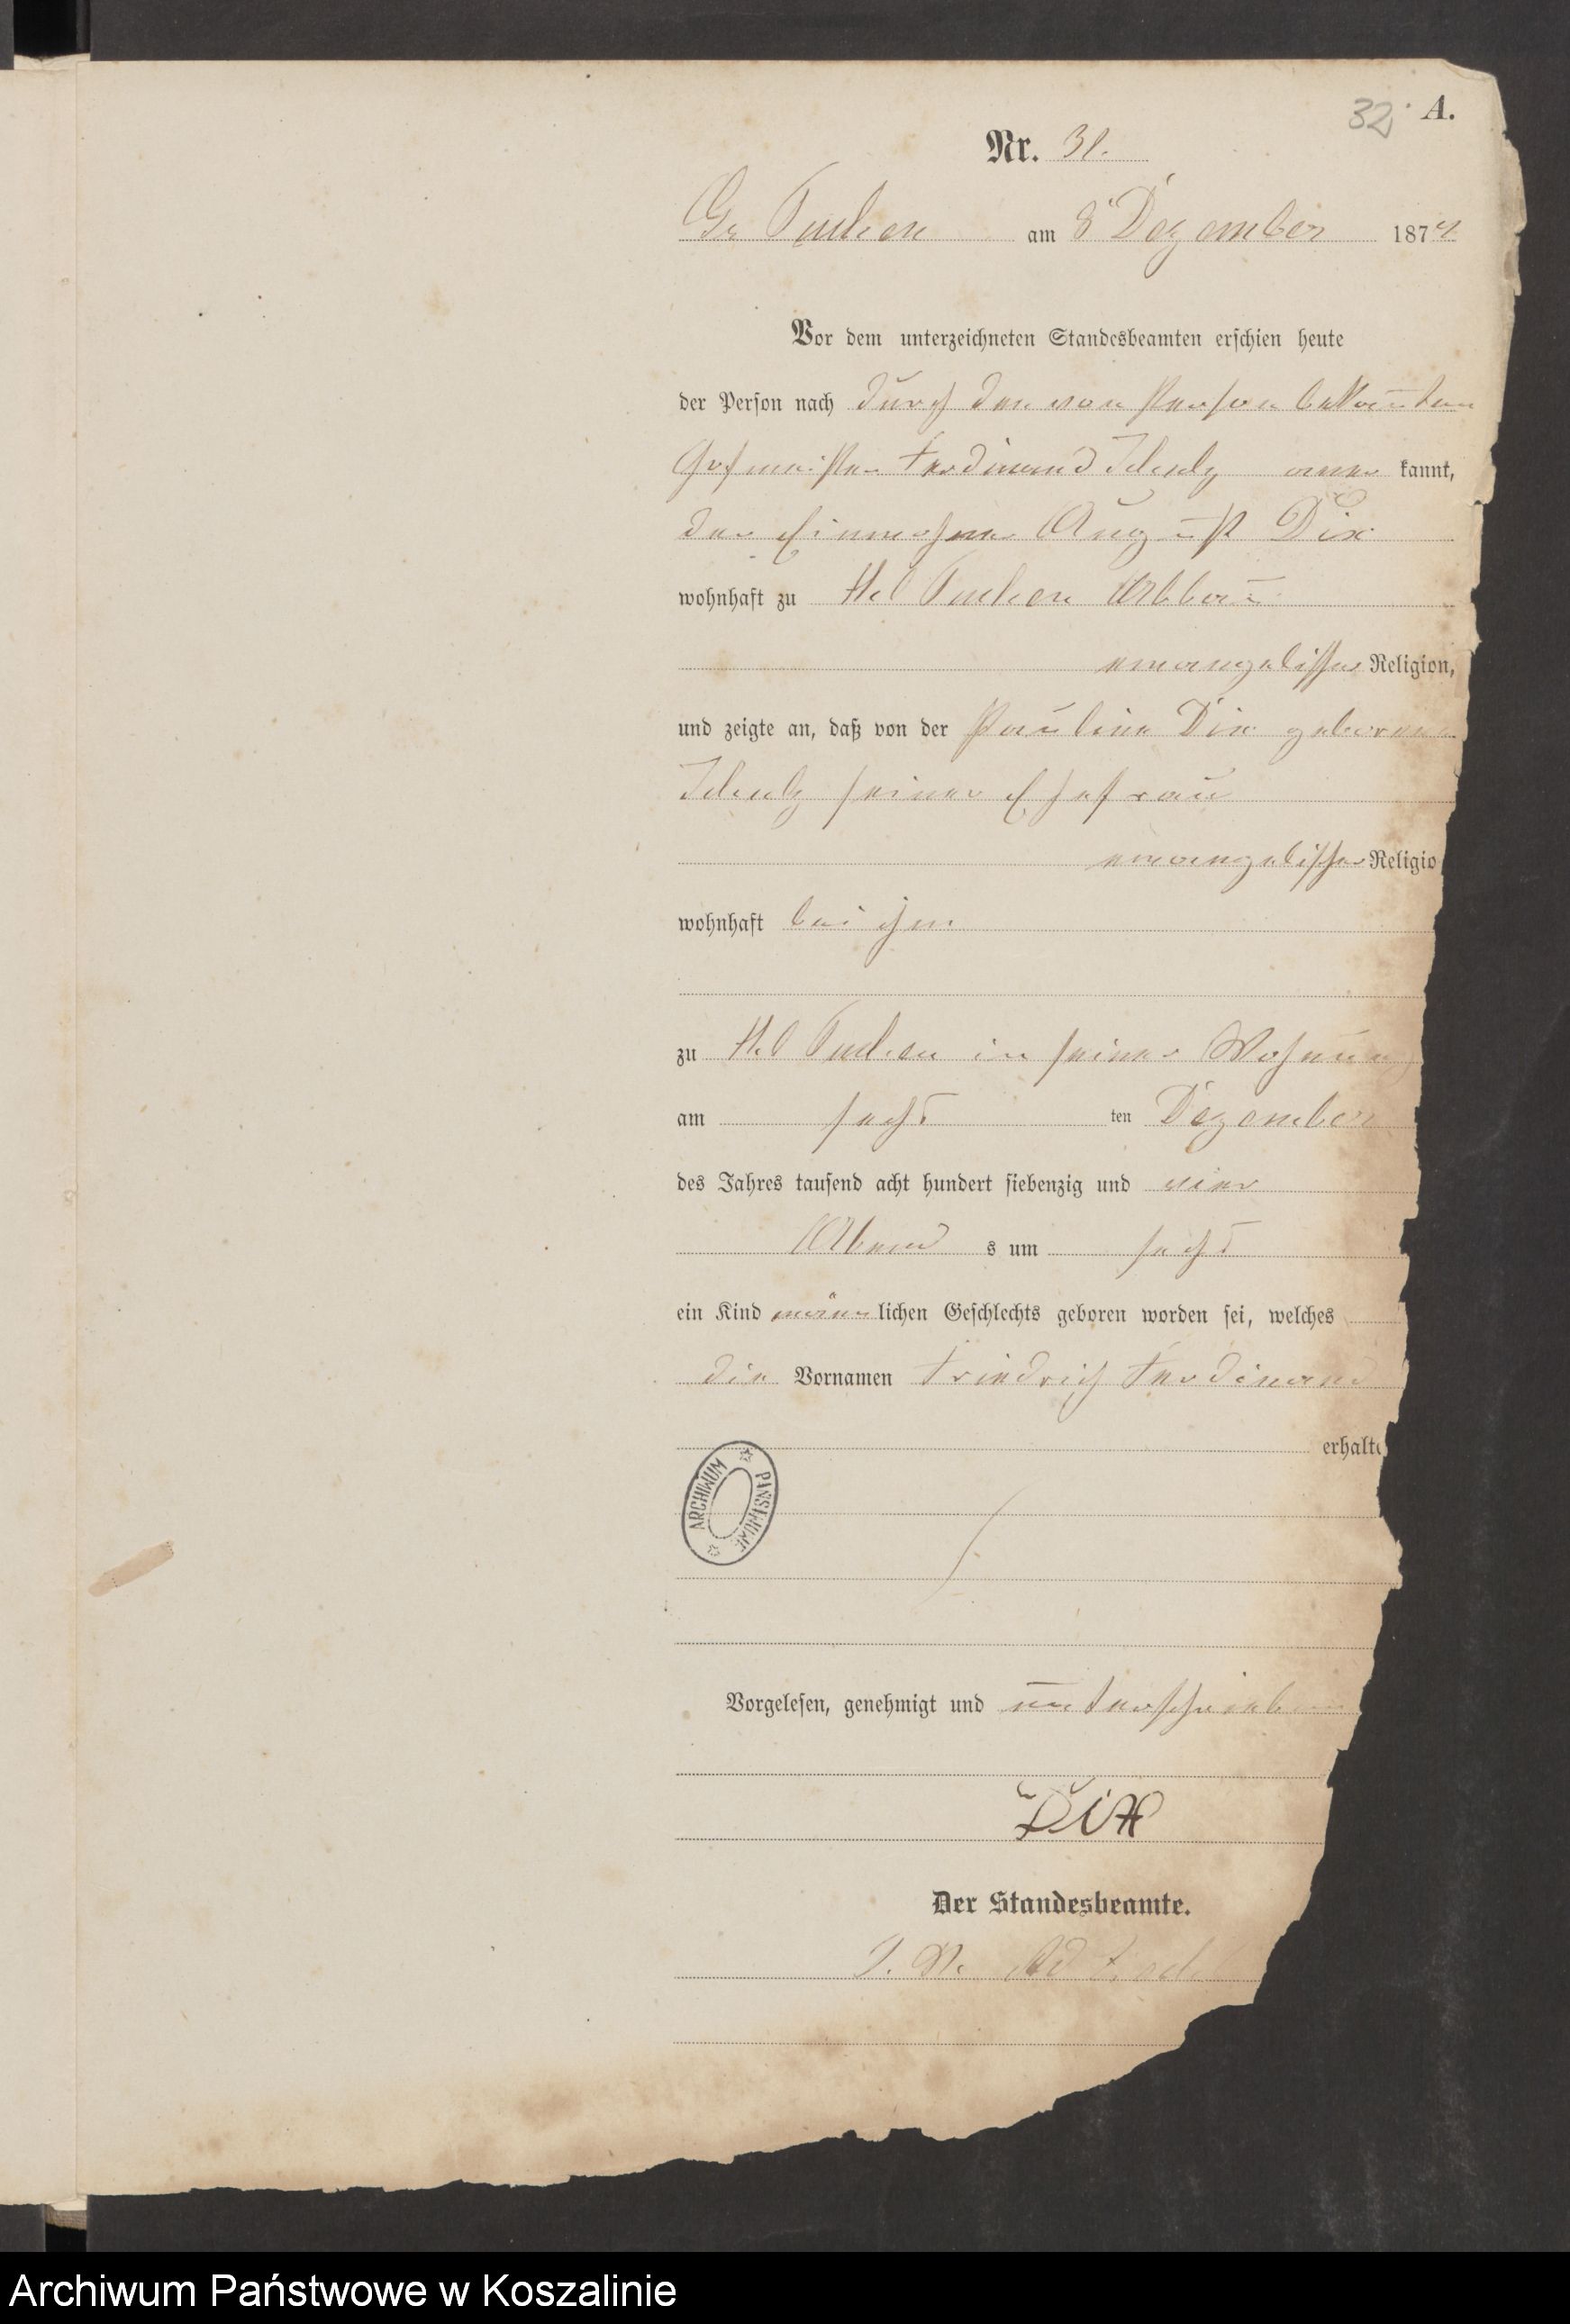 32. A.
Nr. 31.
Gr Tuchen am 8 Dezember 1874
Vor dem unterzeichneten Standesbeamten erschien heute
der Person nach durch den von Person bekannten
Hofmeister Ferdinand Schulz aner kannt,
der Einwohner August Dix
wohnhaft zu Kl Tuchen Abbau
evangelischer Religion,
und zeigte an, daß von der Pauline Dix geborene
Schulz seiner Ehefrau
evangelischer Religio
wohnhaft bei ihm
zu Kl Tuchen in seiner Wohnung
am sechs ten Dezember
des Jahres tausend acht hundert siebenzig und vier
Abend s um sechs
ein Kind männ lichen Geschlechts geboren worden sei, welches
die Vornamen Friedrich Ferdinand
erhalte
ARCHIWUM PAŃSTWOWE
Vorgelesen, genehmigt und unterschrieben
Dix
Der Standesbeamte.
Archiwum Państwowe w Koszalinie